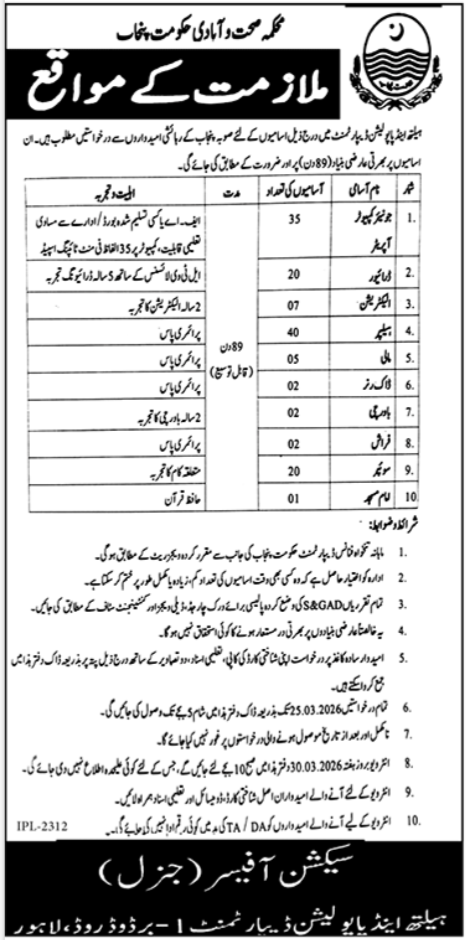 محکمہ صحت و آبادی حکومت پنجاب
ملازمت کے مواقع
ہیلتھ اینڈ پاپولیشن ڈیپارٹمنٹ میں درج ذیل اسامیوں کے لئے صوبہ پنجاب کے رہائشی امیدواروں سے درخواستیں مطلوب ہیں۔ ان
اسامیوں پر بھرتی عارضی بنیاد (89 دن) پر اور ضرورت کے مطابق کی جائے گی۔
شمار نام آسامی آسامیوں کی تعداد مدت اہلیت و تجربہ
1. جونیئر کمپیوٹر آپریٹر 35 89 دن (قابل توسیع) ایف۔اے یا کسی تسلیم شدہ بورڈ/ ادارے سے مساوی
تعلیمی قابلیت، کمپیوٹر پر 35 الفاظ فی منٹ ٹائپنگ اسپیڈ
2. ڈرائیور 20 ایل ٹی وی لائسنس کے ساتھ 5 سالہ ڈرائیونگ تجربہ
3. الیکٹریشن 07 2 سالہ الیکٹریشن کا تجربہ
4. ہیلپر 40 پرائمری پاس
5. مالی 05 پرائمری پاس
6. ڈاک رنر 02 پرائمری پاس
7. باورچی 02 2 سالہ باورچی کا تجربہ
8. فراش 02 پرائمری پاس
9. سوئپر 20 متعلقہ کام کا تجربہ
10. امام مسجد 01 حافظ قرآن
شرائط و ضوابط:
1. ماہانہ تنخواہ فنانس ڈیپارٹمنٹ حکومت پنجاب کی جانب سے مقرر کردہ ویجز ریٹ کے مطابق ہوگی۔
2. ادارہ کو اختیار حاصل ہے کہ وہ کسی بھی وقت اسامیوں کی تعداد کم، زیادہ یا مکمل طور پر ختم کر سکتا ہے۔
3. تمام تقرریاں S&GAD کی وضع کردہ پالیسی برائے ورک چارجڈ، ڈیلی ویجز اور کنٹیجنٹ سٹاف کے مطابق کی جائیں۔
4. یہ خالصتاً عارضی بنیادوں پر بھرتی ور مستعار ہونے کا کوئی استحقاق نہیں ہوگا۔
5. امیدوار سادہ کاغذ پر درخواست اپنی شناختی کارڈ کی کاپی، تعلیمی اسناد، دو تصاویر کے ساتھ درج ذیل پتہ پر بذریعہ ڈاک دفتر ہذا میں
جمع کروا سکتے ہیں۔
6. تمام درخواستیں 25.03.2026 تک بذریعہ ڈاک دفتر ہذا میں شام 5 بجے تک وصول کی جائیں گی۔
7. نامکمل اور بعد از تاریخ موصول ہونے والی درخواستوں پر غور نہیں کیا جائے گا۔
8. انٹرویو بروز ہفتہ 30.03.2026 دفتر ہذا میں صبح 10 بجے لئے جائیں گے، جس کے لئے کوئی علیحدہ اطلاع نہیں دی جائے گی۔
9. انٹرویو کے لئے آنے والے امیدواران اصل شناختی کارڈ، ڈومیسائل اور تعلیمی اسناد ہمراہ لائیں۔
10. انٹرویو کے لیے آنے والے امیدواروں کو TA / DA کی مد میں کوئی رقم ادا نہیں کی جائے گی۔
IPL-2312
سیکشن آفیسر (جنرل)
ہیلتھ اینڈ پاپولیشن ڈیپارٹمنٹ 1- برڈوڈ روڈ، لاہور